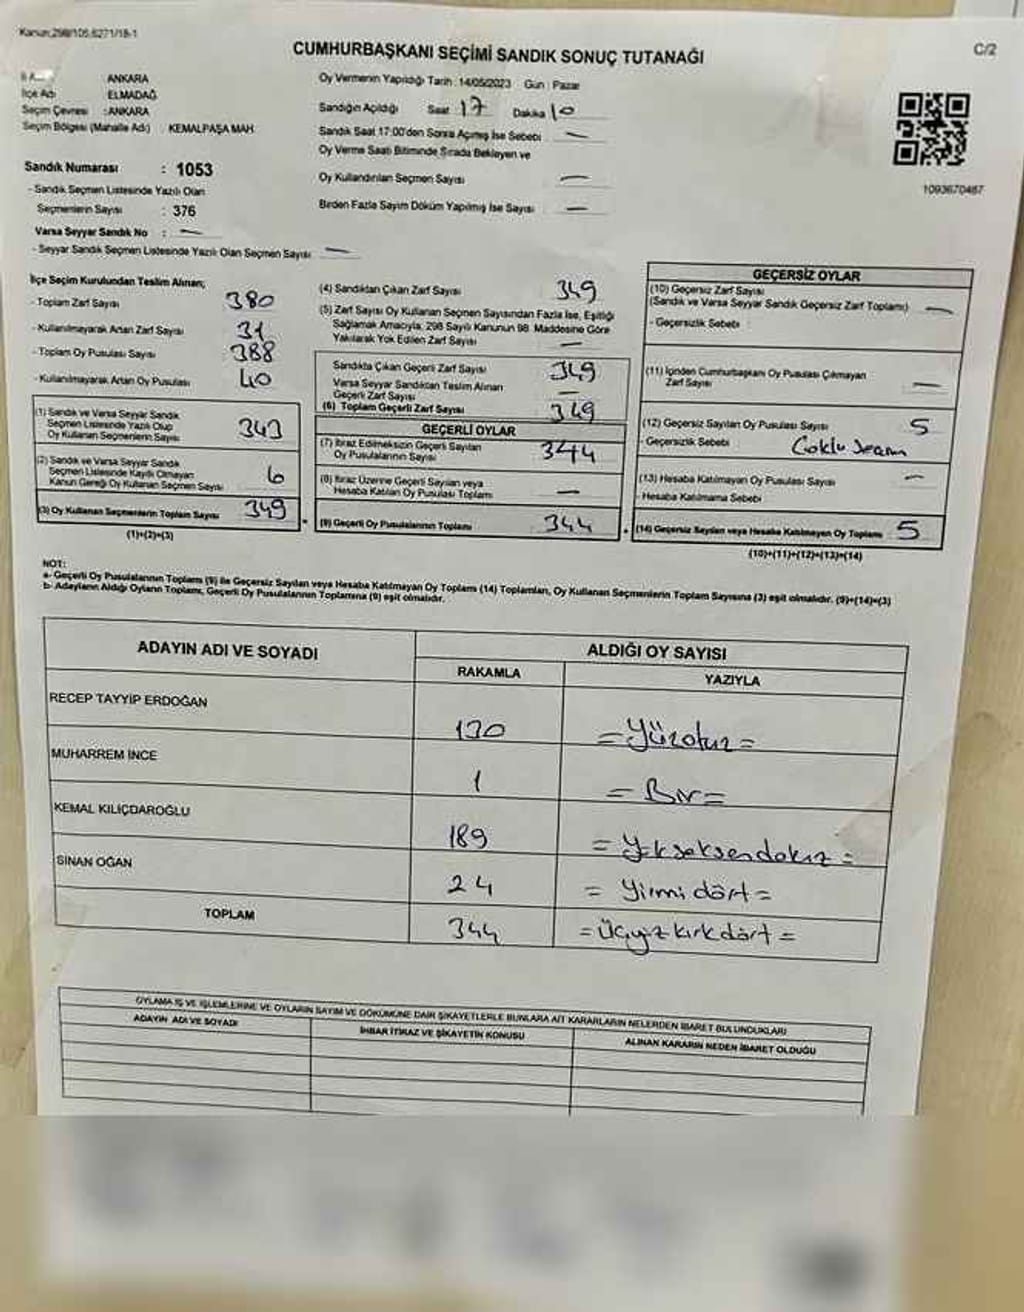 Kanun,298/105,6271/18-1
CUMHURBAŞKANI SEÇİMİ SANDIK SONUÇ TUTANAĞI
C/2
: ANKARA
İlçe Adı : ELMADAĞ
Seçim Çevresi : ANKARA
Seçim Bölgesi (Mahalle Adı) : KEMALPAŞA MAH.
Sandık Numarası : 1053
- Sandık Seçmen Listesinde Yazılı Olan
Seçmenlerin Sayısı : 376
Varsa Seyyar Sandık No : —
- Seyyar Sandık Seçmen Listesinde Yazılı Olan Seçmen Sayısı —
Oy Vermenin Yapıldığı Tarih : 14/05/2023 Gün : Pazar
Sandığın Açıldığı Saat 17 Dakika 10
Sandık Saat 17:00'den Sonra Açılmış İse Sebebi —
Oy Verme Saati Bitiminde Sırada Bekleyen ve
Oy Kullandırılan Seçmen Sayısı —
Birden Fazla Sayım Döküm Yapılmış İse Sayısı —
1093670487
İlçe Seçim Kurulundan Teslim Alınan;
- Toplam Zarf Sayısı 380
- Kullanılmayarak Artan Zarf Sayısı 31
- Toplam Oy Pusulası Sayısı 388
- Kullanılmayarak Artan Oy Pusulası 40
(1) Sandık ve Varsa Seyyar Sandık
Seçmen Listesinde Yazılı Olup
Oy Kullanan Seçmenlerin Sayısı 343
(2) Sandık ve Varsa Seyyar Sandık
Seçmen Listesinde Kayıtlı Olmayan
Kanun Gereği Oy Kullanan Seçmen Sayısı 6
(3) Oy Kullanan Seçmenlerin Toplam Sayısı 349
(1)+(2)=(3)
(4) Sandıktan Çıkan Zarf Sayısı 349
(5) Zarf Sayısı Oy Kullanan Seçmen Sayısından Fazla İse, Eşitliği
Sağlamak Amacıyla, 298 Sayılı Kanunun 98. Maddesine Göre
Yakılarak Yok Edilen Zarf Sayısı —
Sandıkta Çıkan Geçerli Zarf Sayısı 349
Varsa Seyyar Sandıktan Teslim Alınan
Geçerli Zarf Sayısı —
(6) Toplam Geçerli Zarf Sayısı 349
GEÇERLİ OYLAR
(7) İtiraz Edilmeksizin Geçerli Sayılan
Oy Pusulalarının Sayısı 344
(8) İtiraz Üzerine Geçerli Sayılan veya
Hesaba Katılan Oy Pusulası Toplamı —
(9) Geçerli Oy Pusulalarının Toplamı 344
GEÇERSİZ OYLAR
(10) Geçersiz Zarf Sayısı
(Sandık ve Varsa Seyyar Sandık Geçersiz Zarf Toplamı) —
- Geçersizlik Sebebi :
(11) İçinden Cumhurbaşkanı Oy Pusulası Çıkmayan
Zarf Sayısı —
(12) Geçersiz Sayılan Oy Pusulası Sayısı 5
- Geçersizlik Sebebi Çoklu
(13) Hesaba Katılmayan Oy Pusulası Sayısı —
- Hesaba Katılmama Sebebi
(14) Geçersiz Sayılan veya Hesaba Katılmayan Oy Toplamı 5
(10)+(11)+(12)+(13)=(14)
NOT:
a- Geçerli Oy Pusulalarının Toplamı (9) ile Geçersiz Sayılan veya Hesaba Katılmayan Oy Toplamı (14) Toplamları, Oy Kullanan Seçmenlerin Toplam Sayısına (3) eşit olmalıdır. (9)+(14)=(3)
b- Adayların Aldığı Oyların Toplamı, Geçerli Oy Pusulalarının Toplamına (9) eşit olmalıdır.
ADAYIN ADI VE SOYADI
ALDIĞI OY SAYISI
RAKAMLA YAZIYLA
RECEP TAYYİP ERDOĞAN 130 = Yüzotuz =
MUHARREM İNCE 1 = Bir =
KEMAL KILIÇDAROĞLU 189 = Yükseksendokuz =
SİNAN OĞAN 24 = Yirmi dört =
TOPLAM 344 = Üçyüzkırkdört =
OYLAMA İŞ VE İŞLEMLERİNE VE OYLARIN SAYIM VE DÖKÜMÜNE DAİR ŞİKAYETLERLE BUNLARA AİT KARARLARIN NELERDEN İBARET BULUNDUKLARI
ADAYIN ADI VE SOYADI İHBAR İTİRAZ VE ŞİKAYETİN KONUSU ALINAN KARARIN NEDEN İBARET OLDUĞU